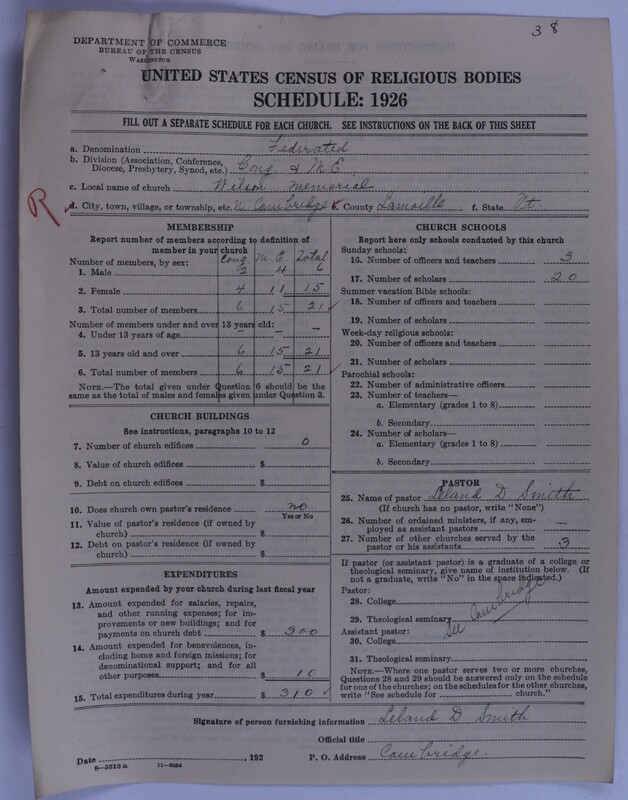 38
DEPARTMENT OF COMMERCE
BUREAU OF THE CENSUS
WASHINGTON
UNITED STATES CENSUS OF RELIGIOUS BODIES
SCHEDULE: 1926
FILL OUT A SEPARATE SCHEDULE FOR EACH CHURCH. SEE INSTRUCTIONS ON THE BACK OF THIS SHEET
a. Denomination Federated
b. Division (Association, Conference, Diocese, Presbytery, Synod, etc.) Cong & M E.
c. Local name of church Wilson Memorial
R
d. City, town, village, or township, etc. N. Cambridge e. County Lamoille f. State Vt.
MEMBERSHIP
Report number of members according to definition of
member in your church
Number of members, by sex: Cong M. E. Total
1. Male 2 4 6
2. Female 4 11 15
3. Total number of members 6 15 21
Number of members under and over 13 years old:
4. Under 13 years of age – – –
5. 13 years old and over 6 15 21
6. Total number of members 6 15 21
NOTE.—The total given under Question 6 should be the
same as the total of males and females given under Question 3.
CHURCH BUILDINGS
See instructions, paragraphs 10 to 12
7. Number of church edifices 0
8. Value of church edifices $
9. Debt on church edifices $
10. Does church own pastor's residence no
Yes or No
11. Value of pastor's residence (if owned by
church) $
12. Debt on pastor's residence (if owned by
church) $
EXPENDITURES
Amount expended by your church during last fiscal year
13. Amount expended for salaries, repairs,
and other running expenses; for im-
provements or new buildings; and for
payments on church debt $ 300
14. Amount expended for benevolences, in-
cluding home and foreign missions; for
denominational support; and for all
other purposes $ 10
15. Total expenditures during year $ 310
CHURCH SCHOOLS
Report here only schools conducted by this church
Sunday schools:
16. Number of officers and teachers 3
17. Number of scholars 20
Summer vacation Bible schools:
18. Number of officers and teachers
19. Number of scholars
Week-day religious schools:
20. Number of officers and teachers
21. Number of scholars
Parochial schools:
22. Number of administrative officers
23. Number of teachers—
a. Elementary (grades 1 to 8)
b. Secondary
24. Number of scholars—
a. Elementary (grades 1 to 8)
b. Secondary
PASTOR
25. Name of pastor Leland D Smith
(If church has no pastor, write "None")
26. Number of ordained ministers, if any, em-
ployed as assistant pastors –
27. Number of other churches served by the
pastor or his assistants 3
If pastor (or assistant pastor) is a graduate of a college or
theological seminary, give name of institution below. (If
not a graduate, write "No" in the space indicated.)
Pastor:
28. College
29. Theological seminary
See Cambridge
Assistant pastor:
30. College
31. Theological seminary
NOTE.—Where one pastor serves two or more churches,
Questions 28 and 29 should be answered only on the schedule
for one of the churches; on the schedules for the other churches,
write "See schedule for church."
Signature of person furnishing information Leland D. Smith
Official title
Date , 192 P. O. Address Cambridge.
8-5515a 11-9054